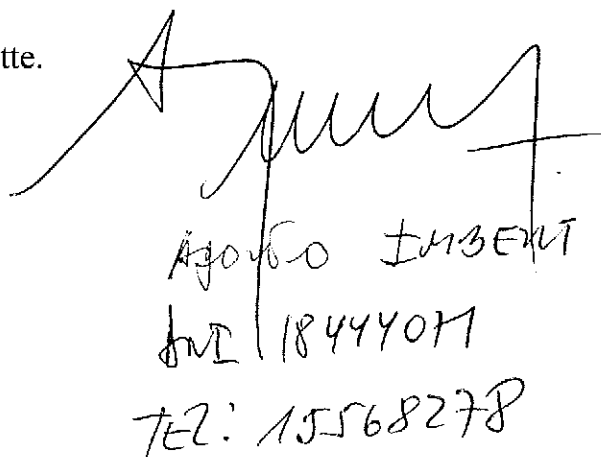 tte.
IMBERT
DNI 18444071
TEL: 15568278